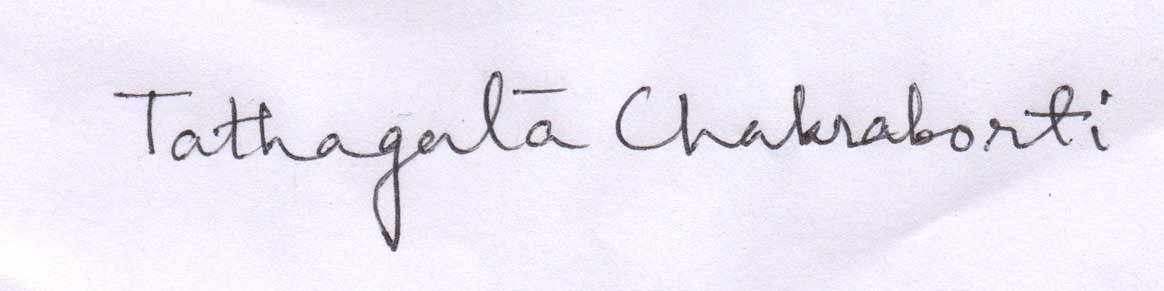 Tathagata Chakraborti